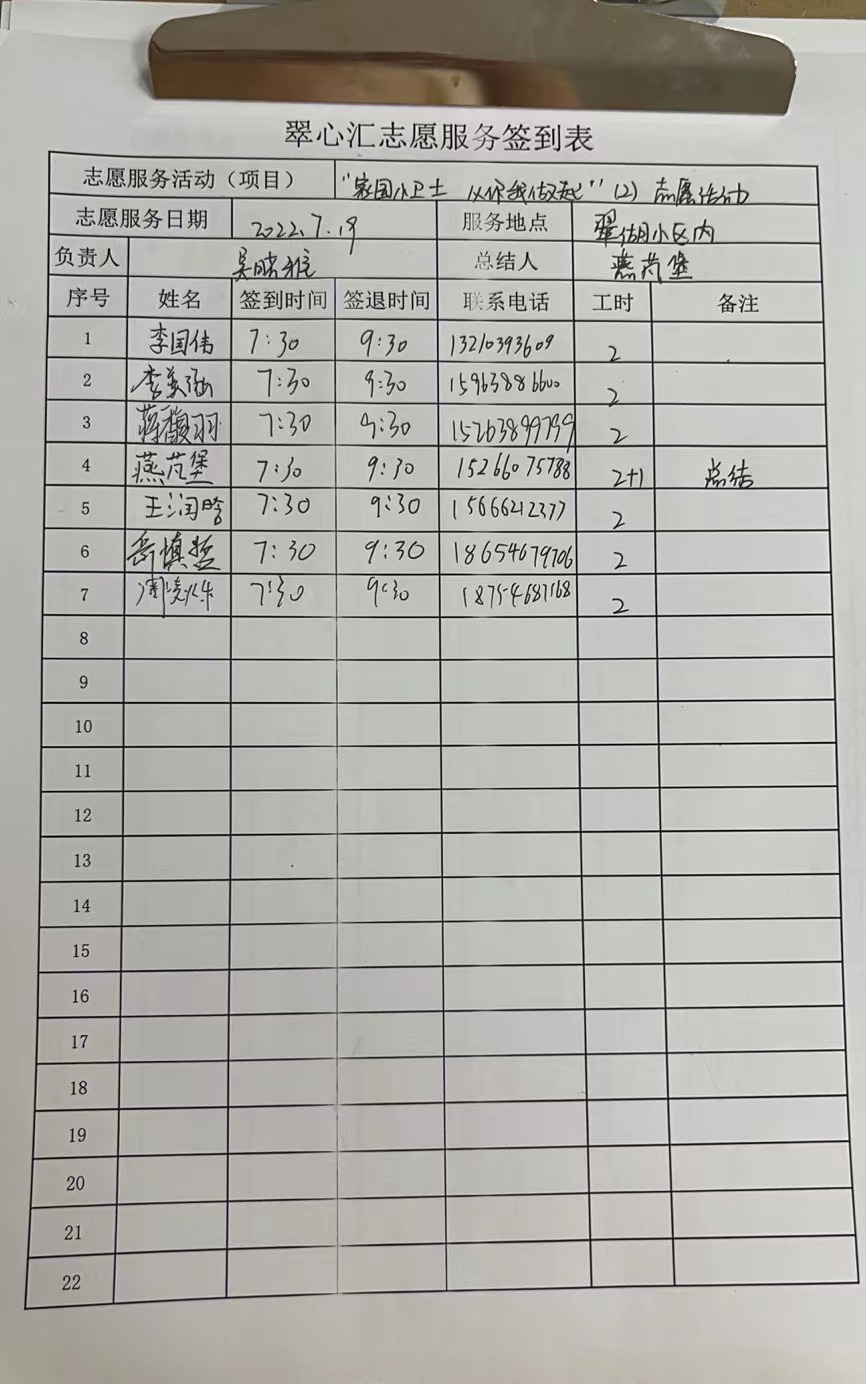 翠心汇志愿服务签到表
志愿服务活动（项目） "家园小卫士 从你我做起"（2）志愿活动
志愿服务日期 2022.7.19 服务地点 翠湖小区内
负责人 吴晓雅 总结人 燕芃堡
序号 姓名 签到时间 签退时间 联系电话 工时 备注
1 李国伟 7:30 9:30 13210393609 2
2 7:30 9:30 15963886600 2
3 蒋馥羽 7:30 9:30 15263899799 2
4 燕芃堡 7:30 9:30 15266075788 2+1 总结
5 王润晗 7:30 9:30 15666212377 2
6 岳慎哲 7:30 9:30 18654679706 2
7 7:30 9:30 18754687168 2
8
9
10
11
12
13
14
15
16
17
18
19
20
21
22